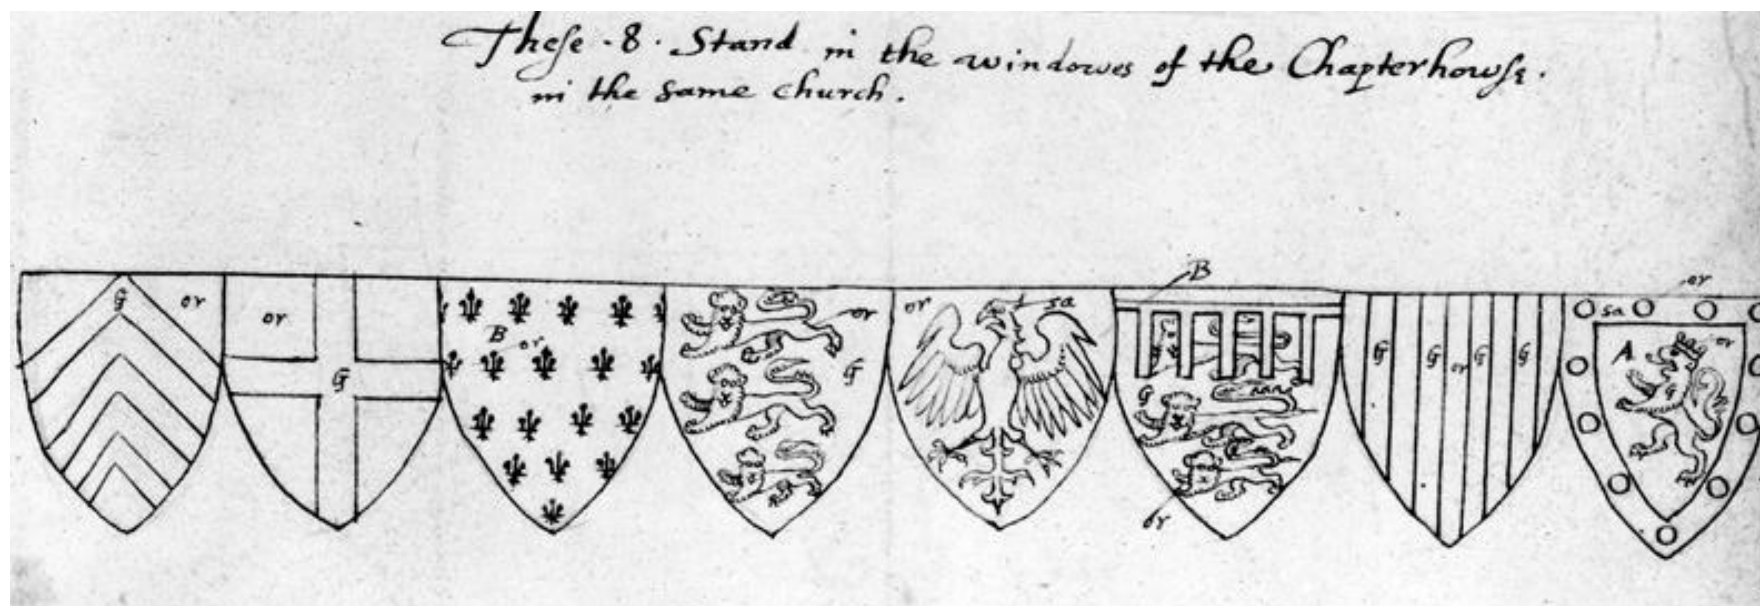 These . 8 . Stand in the windowes of the Chapterhowse .
in the same church .
B
or
or sa
G or
or
G
B or
or
G
or sa
G
or
G G or G G
sa
A or
G